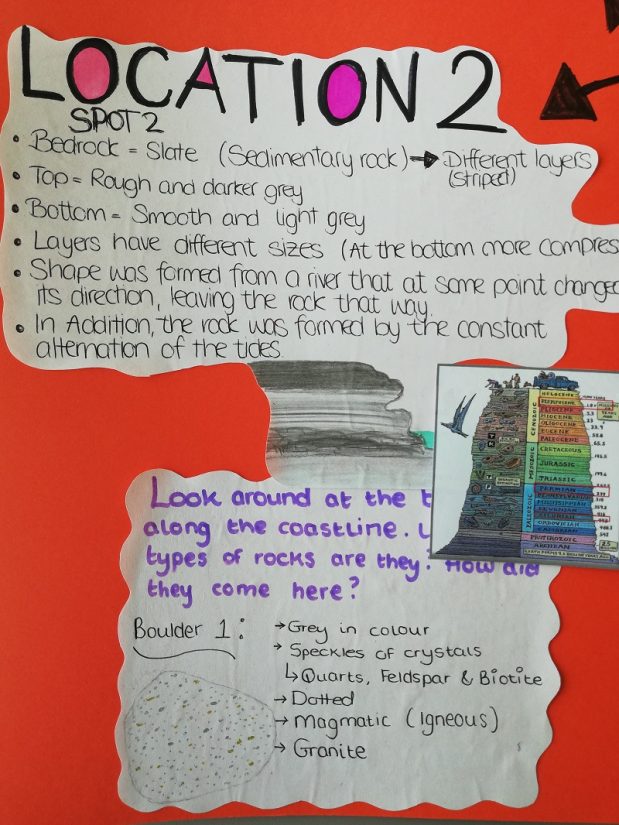 LOCATION 2
SPOT 2
• Bedrock = Slate (Sedimentary rock) → Different layers
(Striped)
• Top = Rough and darker grey
• Bottom = Smooth and light grey
• Layers have different sizes (At the bottom more compres
• Shape was formed from a river that at some point changed
its direction, leaving the rock that way.
• In Addition, the rock was formed by the constant
alternation of the tides.
HOLOCENE
PLEISTOCENE
PLIOCENE
MIOCENE
OLIGOCENE
EOCENE
PALEOCENE
CENOZOIC
CRETACEOUS
JURASSIC
TRIASSIC
MESOZOIC
PERMIAN
PENNSYLVANIAN
MISSISSIPPIAN
DEVONIAN
SILURIAN
ORDOVICIAN
CAMBRIAN
PALEOZOIC
PROTEROZOIC
ARCHEAN
Look around at the
along the coastline.
types of rocks are they? How did
they come here?
Boulder 1:
→ Grey in colour
→ Speckles of crystals
↳ Quarts, Feldspar & Biotite
→ Dotted
→ Magmatic (Igneous)
→ Granite